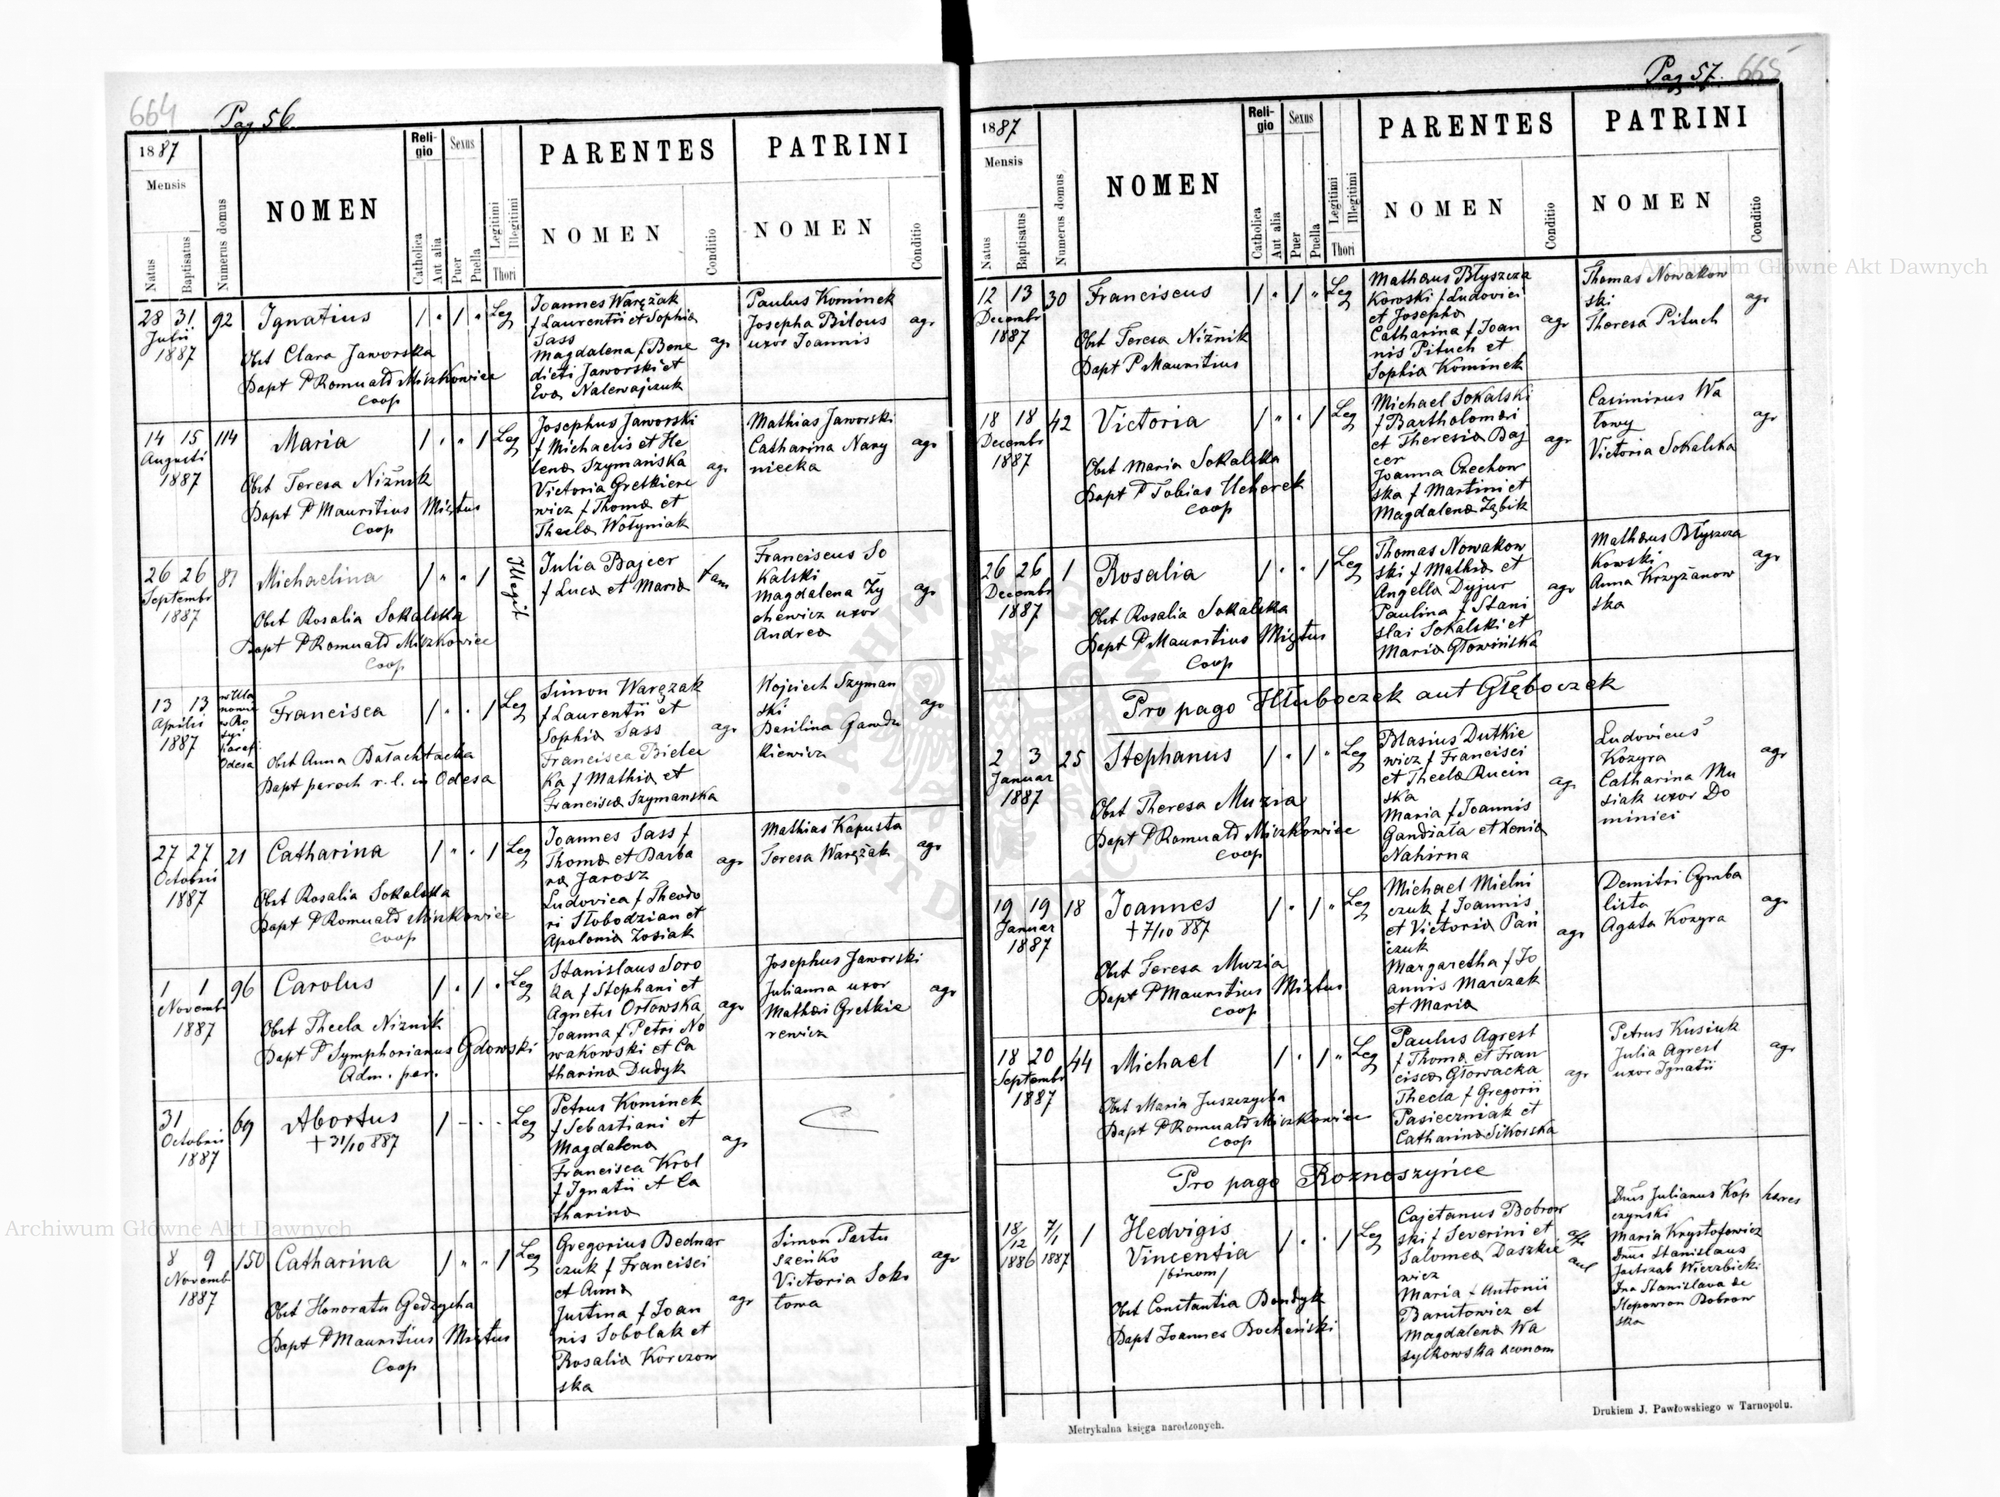 664 Pag 56
1887
Mensis
Natus
Baptisatus
Numerus domus
NOMEN
Reli-
gio
Catholica
Aut alia
Sexus
Puer
Puella
Legitimi
Illegitimi
Thori
PARENTES
NOMEN
Conditio
PATRINI
NOMEN
Conditio
28 31
Julii
1887
92
Ignatius
Obst Clara Jaworska
Bapt P Romuald Miszkowicz
Coop
Leg
Joannes Warężak
f Laurentii et Sophia
Sass
Magdalena f Bene
dicti Jaworski et
Eva Nalewajczuk
agr
Paulus Kominek
Josepha Bilous
uxor Joannis
agr
14 15
Augusti
1887
114
Maria
Obst Teresa Niżnik
Bapt P Mauritius Miętus
Coop
Leg
Josephus Jaworski
f Michaelis et He
lena Szymańska
Victoria Gretkiere
wicz f Thoma et
Thecla Wołyniak
agr
Mathias Jaworski
Catharina Nary
niecka
agr
26 26
Septembr
1887
87
Michaelina
Obst Rosalia Sokalska
Bapt P Romuald Miszkowicz
Coop
Illegit
Julia Bajcer
f Luca et Maria
fam
Franciscus So
kalski
Magdalena Ży
chewicz uxor
Andrea
agr
13 13
Aprilis
1887
Odesa
Francisca
Obst Anna Bałachtacka
Bapt paroch r. l. in Odesa
Leg
Simon Waręzak
f Laurentii et
Sophia Sass
Francisca Bielec
ka f Mathia et
Francisca Szymanska
agr
Wojciech Szyman
ski
Basilina Gawdz
kiewicz
agr
27 27
Octobris
1887
21
Catharina
Obst Rosalia Sokalska
Bapt P Romuald Miszkowicz
Coop
Leg
Joannes Sass f
Thoma et Barba
ra Jarosz
Ludovica f Theodo
ri Słobodzian et
Apolonia Zosiak
agr
Mathias Kapusta
Teresa Waręzak
agr
1 1
Novemb
1887
96
Carolus
Obst Thecla Niznik
Bapt P Symphorianus Gdowski
Adm. par.
Leg
Stanislaus Soro
ka f Stephani et
Agnetis Orłowska
Joanna f Petri No
wakowski et Ca
tharina Dudyk
agr
Josephus Jaworski
Julianna uxor
Mathei Gretkie
rewicz
agr
31
Octobris
1887
69
Abortus
† 31/10 887
Leg
Petrus Kominek
f Sebastiani et
Magdalena
Francisca Krol
f Ignatii et Ca
tharina
agr
8 9
Novemb
1887
150
Catharina
Obst Honorata Gedzycha
Bapt P Mauritius Miętus
Coop
Leg
Gregorius Bednar
czuk f Francisci
et Anna
Justina f Joan
nis Sobolak et
Rosalia Korczow
ska
agr
Simon Partu
szeńko
Victoria Soko
towa
agr
Pag 57. 665
1887
Mensis
Natus
Baptisatus
Numerus domus
NOMEN
Reli-
gio
Catholica
Aut alia
Sexus
Puer
Puella
Legitimi
Illegitimi
Thori
PARENTES
NOMEN
Conditio
PATRINI
NOMEN
Conditio
12 13
Decembr
1887
30
Franciscus
Obst Teresa Niżnik
Bapt P Mauritius
Leg
Matheus Błyszcza
kowski f Ludovici
et Josepha
Catharina f Joan
nis Pituch et
Sophia Kominek
agr
Thomas Nowakow
ski
Theresa Pituch
agr
18 18
Decembr
1887
42
Victoria
Obst Maria Sokalska
Bapt P Tobias Ucherek
Coop
Leg
Michael Sokalski
f Bartholomei
et Theresia Baj
cer
Joanna Czechow
ska f Martini et
Magdalena Zębik
agr
Casimirus Wa
towy
Victoria Sokalska
agr
26 26
Decembr
1887
1
Rosalia
Obst Rosalia Sokalska
Bapt P Mauritius Miętus
Coop
Leg
Thomas Nowakow
ski f Mathia et
Angella Dyjur
Paulina f Stani
slai Sokalski et
Maria Głowińska
agr
Matheus Błyszcza
kowski
Anna Krzyżanow
ska
agr
Pro pago Hłuboczek aut Głęboczek
2 3
Januar
1887
25
Stephanus
Obst Theresa Muzia
Bapt P Romuald Miszkowicz
Coop
Leg
Blasius Dutkie
wicz f Francisci
et Thecla Rucin
ska
Maria f Joannis
Gandziała et Xenia
Nahirna
agr
Ludovicus
Kozyra
Catharina Mu
siak uxor Do
minici
agr
19 19
Januar
1887
18
Joannes
† 7/10 887
Obst Teresa Muzia
Bapt P Mauritius Miętus
Coop
Leg
Michael Mielni
czuk f Joannis
et Victoria Pań
czuk
Margaretha f Jo
annis Marczak
et Maria
agr
Demitri Cymba
lista
Agata Kozyra
agr
18 20
Septembr
1887
44
Michael
Obst Maria Juszczycha
Bapt P Romuald Miszkowicz
Coop
Leg
Paulus Agrest
f Thoma et Fran
cisca Głowacka
Thecla f Gregorii
Pasieczniak et
Catharina Sikorska
agr
Petrus Kusiuk
Julia Agrest
uxor Ignatii
agr
Pro pago Roznoszyńce
18/12 1886
7/1 1887
1
Hedvigis
Vincentia
/binom/
Obst Constantia Bondyk
Bapt Joannes Bocheński
Leg
Cajetanus Bobrow
ski f Severini et
Salomea Daszkie
wicz
Maria f Antonii
Barutowicz et
Magdalena Wa
sylkowska
Dnus Julianus Kop
czynski
Maria Krystofowicz
Dnus Stanislaus
Jastrzab Wierzbicki
Dna Stanislava de
Slepowron Bobrow
ska
haeres
Metrykalna księga narodzonych.
Drukiem J. Pawłowskiego w Tarnopolu.
Archiwum Główne Akt Dawnych
Archiwum Główne Akt Dawnych